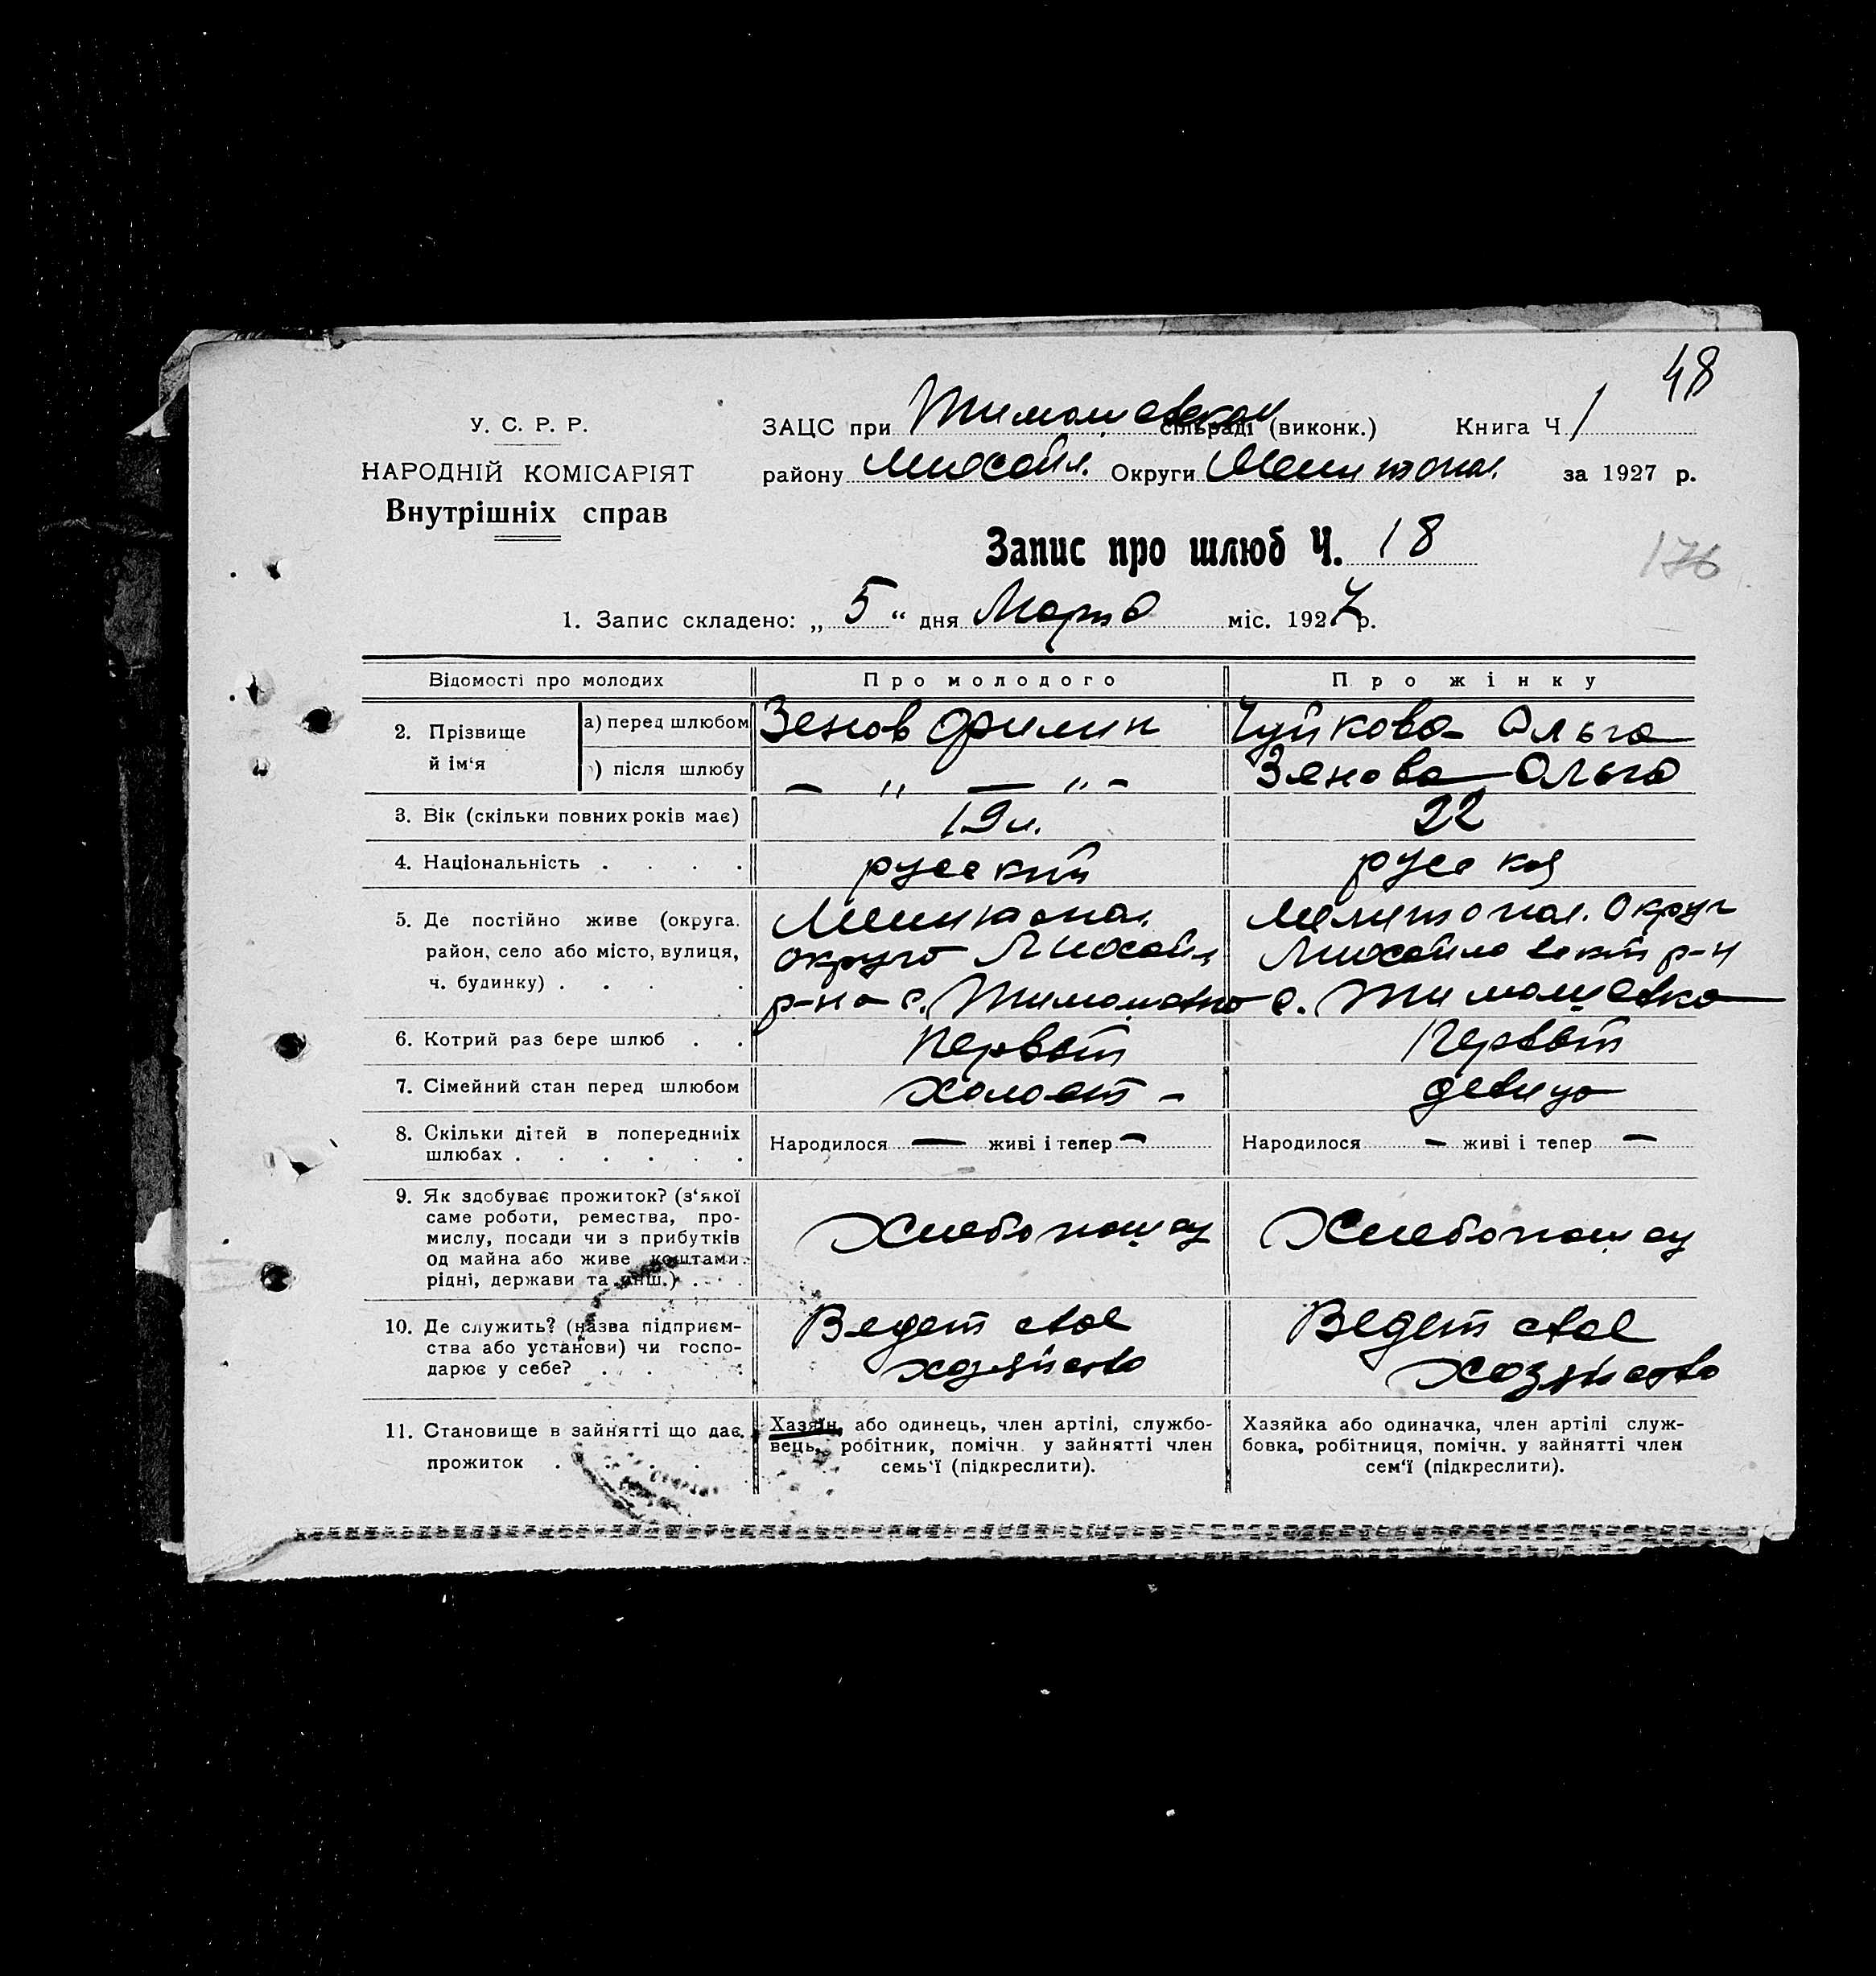 48
У. С. Р. Р.
НАРОДНІЙ КОМІСАРІЯТ
Внутрішніх справ
ЗАЦС при Тимошевском сільраді (виконк.) Книга Ч 1
району Михайл. Округи Мелитопол. за 1927 р.
Запис про шлюб Ч. 18
176
1. Запис складено: „ 5 “ дня Марта міс. 1927 р.
Відомості про молодих
Про молодого
Про жінку
2. Прізвище й ім‘я
а) перед шлюбом
Зенов Филип
Чуйкова Ольга
) після шлюбу
— „ — „ —
Зенова Ольга
3. Вік (скільки повних років має)
19 л.
22
4. Національність . . . .
руский
руская
5. Де постійно живе (округа.
район, село або місто, вулиця,
ч. будинку) . . . .
Мелитопол.
округа Михайл
р-на с. Тимошевка
Мелитопол. Округ
Михайловский р-н
с. Тимошевка
6. Котрий раз бере шлюб . .
Первый
Первый
7. Сімейний стан перед шлюбом
Холост –
девица
8. Скільки дітей в попередниіх
шлюбах . . . . . .
Народилося — живі і тепер —
Народилося — живі і тепер —
9. Як здобуває прожиток? (з‘якої
саме роботи, ремества, про-
мислу, посади чи з прибутків
од майна або живе коштами
рідні, держави та инш.) . . .
Хлебопашец
Хлебопашец
10. Де служить? (назва підприєм-
ства або установи) чи госпо-
дарює у себе? . . . .
Ведет свое
хозяйство
Ведет свое
хозяйство
11. Становище в зайнятті що дає
прожиток . . . .
Хазяїн, або одинець, член артілі, службо-
вець, робітник, помічн. у зайнятті член
семь‘ї (підкреслити).
Хазяйка або одиначка, член артілі служ-
бовка, робітниця, помічн. у зайнятті член
сем‘ї (підкреслити).